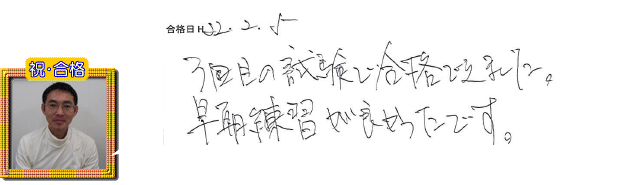 合格日 H 22.2.5
祝・合格
3回目の試験で合格できました。
早期練習が良かったです。